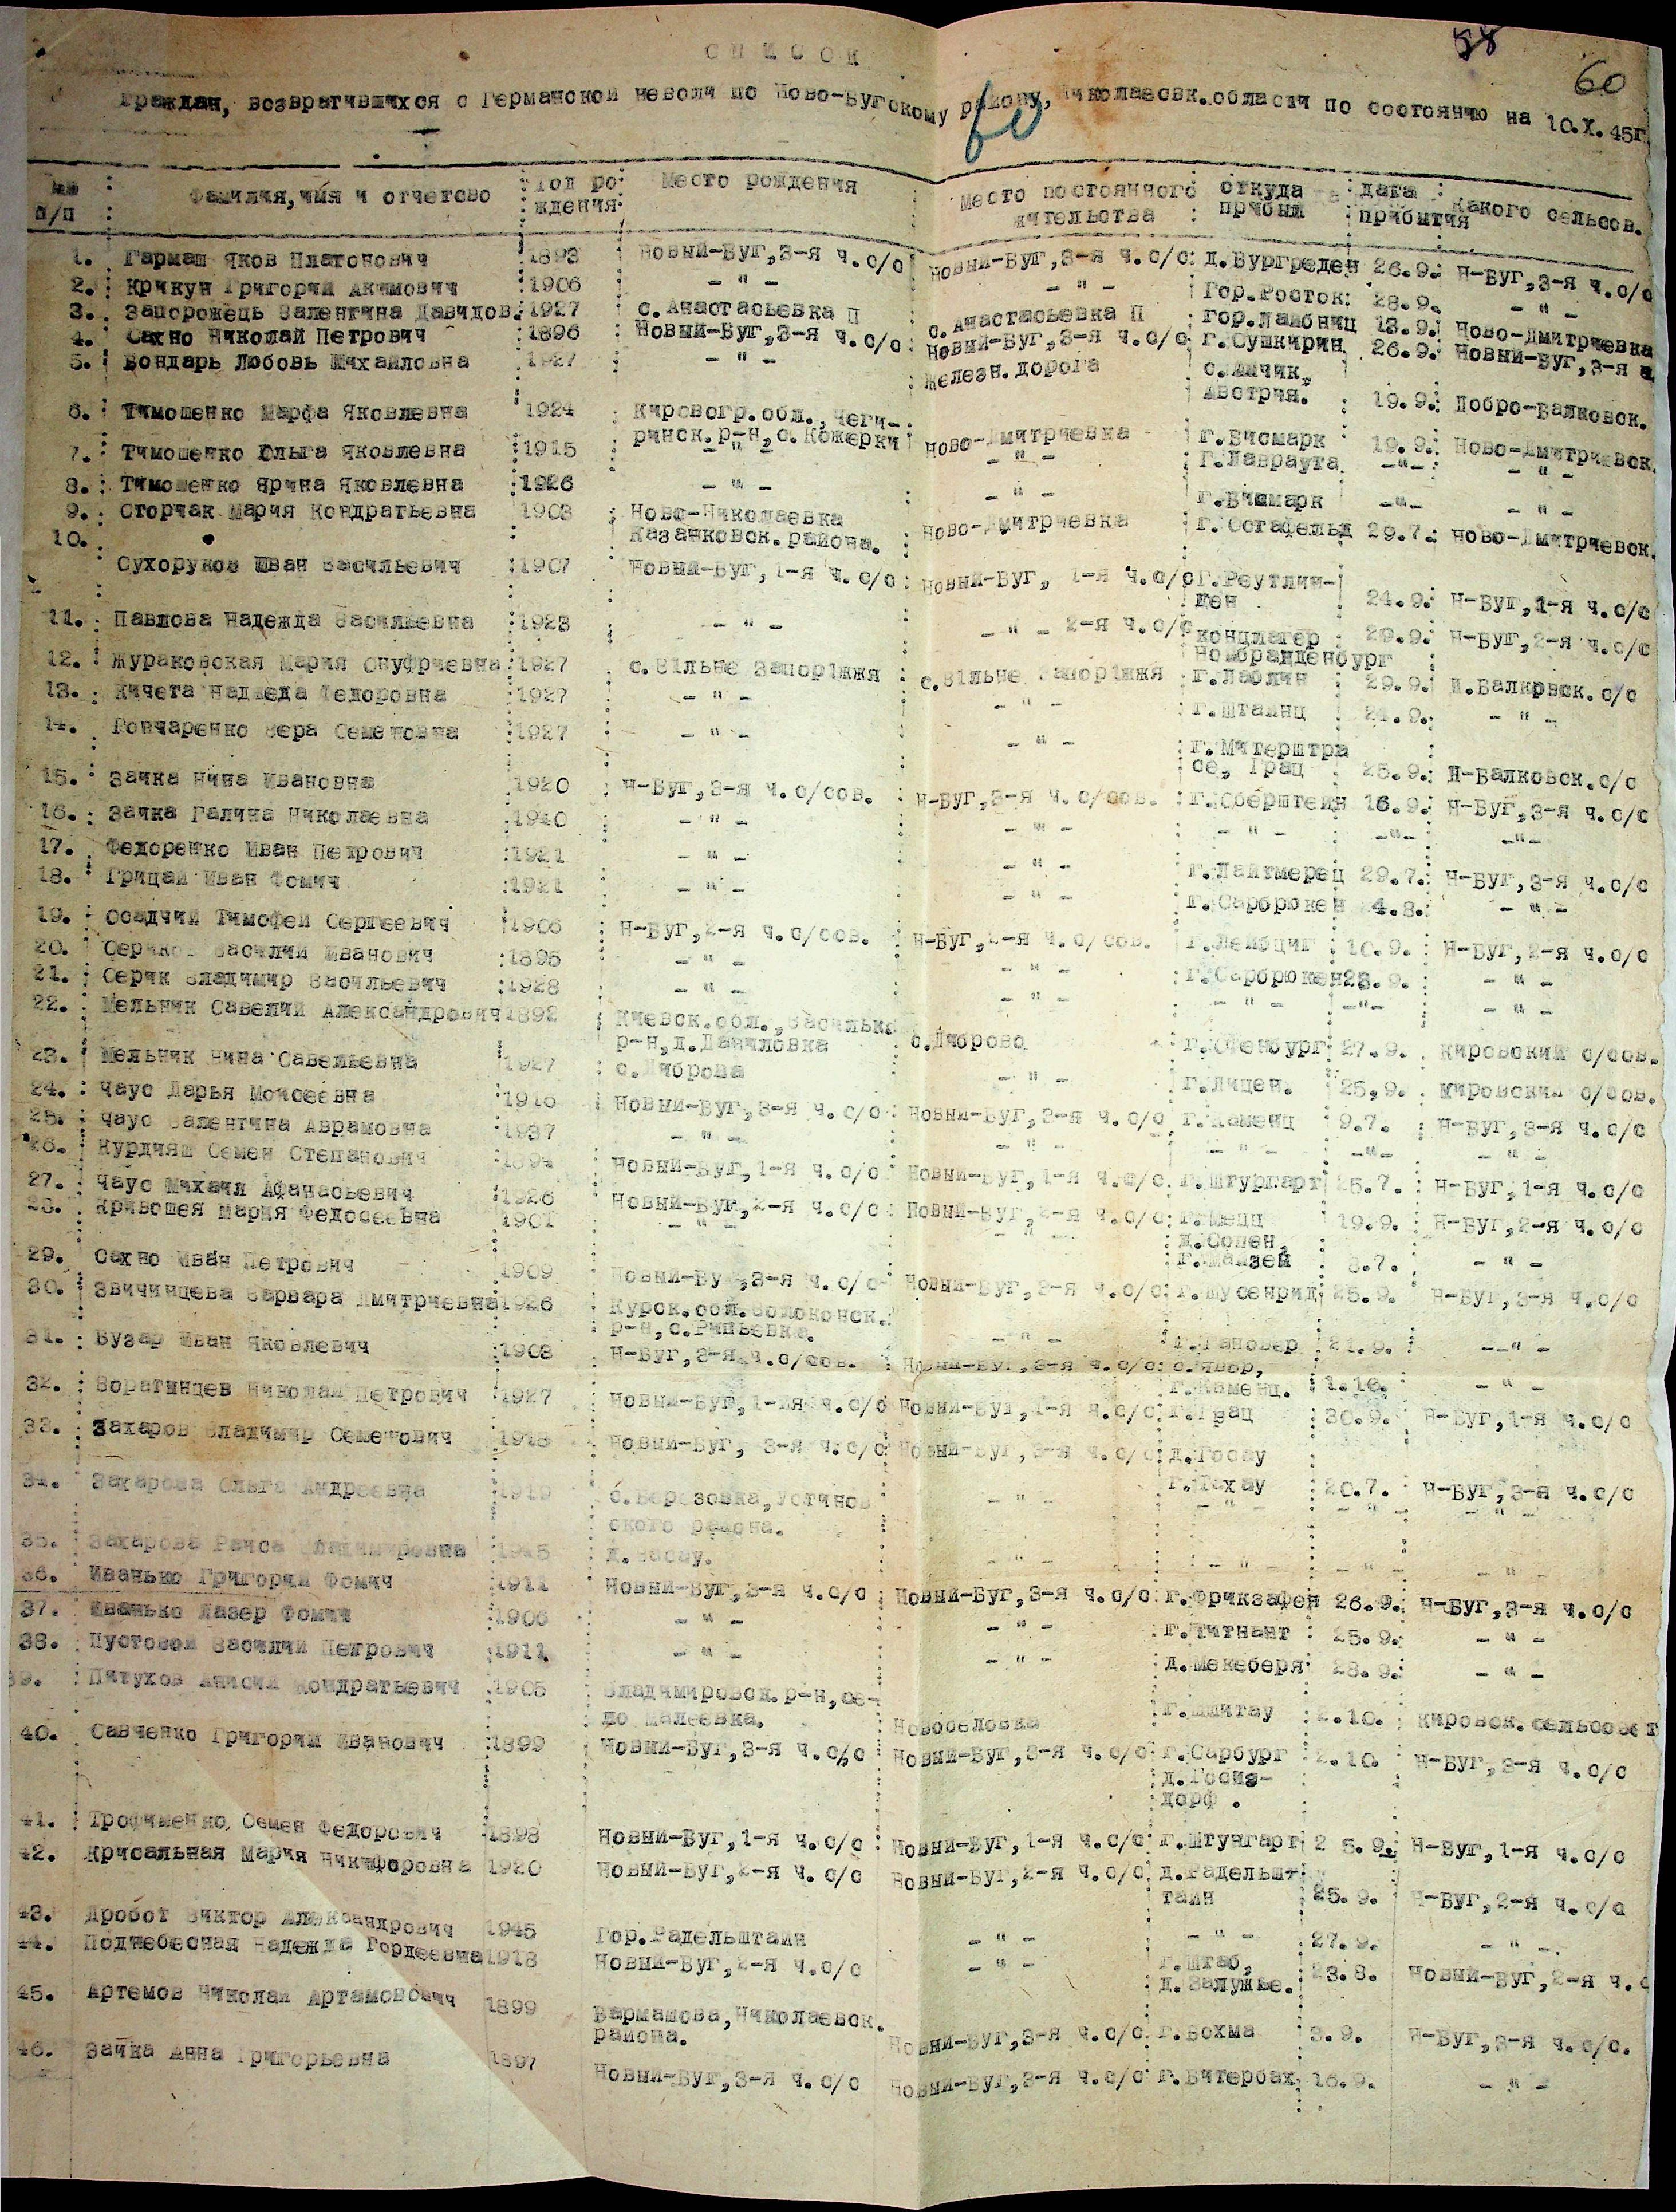 58
60
СПИСОК
граждан, возвратившихся с Германской неволи по Ново-Бугскому району, Николаевск.области по состоянию на 10.X.45г.
60
№№ п/п : Фамилия, имя и отчетсво : Год рождения : Место рождения : Место постоянного жительства : откуда прибыл : дата прибытия : Какого сельсов.
1. Гармаш Яков Платонович 1893 Новый-Буг,3-я ч.с/с Новый-Буг,3-я ч.с/с д.Бургреден 26.9. Н-Буг,3-я ч.с/с
2. Крикун Григорий Акимович 1906 -"- -"- Гор.Росток 28.9. -"-
3. Запорожець Валентина Давидов. 1927 с.Анастасьевка П с.Анастасьевка П гор.Ламбниц 13.9. Ново-Дмитриевка
4. Сахно Николай Петрович 1896 Новый-Буг,3-я ч.с/с Новый-Буг,3-я ч.с/с г.Сушкирин 26.9. Новый-Буг,3-я ч
5. Бондарь Любовь Михайловна 1927 -"- Железн.дорога
Австрия. 19.9. Побро-Валковск.
6. Тимошенко Марфа Яковлевна 1924 Кировогр.обл.,Чеги-
ринск.р-н,с.Кожерки Ново-Дмитриевка г.Бисмарк 19.9. Ново-Дмитриевск.
7. Тимошенко Ольга Яковлевна 1915 -"- -"- Г.Лавраута -"- -"-
8. Тимошенко Ярина Яковлевна 1926 -"- -"- г.Бисмарк -"- -"-
9. Сторчак Мария Кондратьевна 1903 Ново-Николаевка
Казанковск.района. Ново-Дмитриевка г.Остафельд 29.7. Ново-Дмитриевск.
10.
Сухоруков Иван Васильевич 1907 Новый-Буг,1-я ч.с/с Новый-Буг, 1-я ч.с/с Г.Реутлин-
ген 21.9. Н-Буг,1-я ч.с/с
11. Павлова Надежда Васильевна 1923 -"- -"- 2-я ч.с/с концлагер 29.9. Н-Буг,2-я ч.с/с
Номбранденбург
12. Жураковская Мария Онуфриевна 1927 с.Вільне Запоріжжя с.Вільне Запоріжжя г.Лаблин 29.9. П.Валковск.с/с
13. Кичета Надежда Федоровна 1927 -"- -"- г.Штайнц 21.9. -"-
14. Гончаренко Вера Семеновна 1927 -"- -"- г.Митерштра
се, Грац 25.9. П-Валковск.с/с
15. Заика Нина Ивановна 1920 Н-Буг,3-я ч.с/сов. Н-Буг,3-я ч.с/сов. г.Оберштейн 16.9. Н-Буг,3-я ч.с/с
16. Заика Галина Николаевна 1940 -"- -"- -"- -"- -"-
17. Федоренко Иван Петрович 1921 -"- -"- г.Лайтмерец 29.7. Н-Буг,3-я ч.с/с
18. Грицай Иван Фомич 1921 -"- -"- г.Сарбрюкен 4.8. -"-
19. Осадчий Тимофей Сергеевич 1906 Н-Буг,2-я ч.с/сов. Н-Буг,2-я ч.с/сов. г.Лейбциг 10.9. Н-Буг,2-я ч.с/с
20. Сериков Василий Иванович 1895 -"- -"- г.Сарбрюкен 23.9. -"-
21. Серик Владимир Васильевич 1928 -"- -"- -"- -"- -"-
22. Мельник Савелий Александрович 1892 Киевск.обл.,Васильк
р-н,д.Даниловка с.Диброво г.Офенбург 27.9. Кировский с/сов.
23. Мельник Нина Савельевна 1927 с.Диброва -"- г.Лицен. 25.9. Кировский с/сов.
24. Чаус Дарья Моисеевна 1916 Новый-Буг,3-я ч.с/с Новый-Буг,3-я ч.с/с г.Каменц 9.7. Н-Буг,3-я ч.с/с
25. Чаус Валентина Аврамовна 1937 -"- -"- -"- -"- -"-
26. Курдияш Семен Степанович 1894 Новый-Буг,1-я ч.с/с Новый-Буг,1-я ч.с/с г.Штургарт 25.7. Н-Буг,1-я ч.с/с
27. Чаус Михаил Афанасьевич 1926 Новый-Буг,2-я ч.с/с Новый-Буг,2-я ч.с/с г.Мецц 19.9. Н-Буг,2-я ч.с/с
28. Кривошея Мария Федосеевна 1901 -"- -"- д.Сопен,
г.Майзей 8.7. -"-
29. Сахно Иван Петрович 1909 Новый-Буг,3-я ч.с/с Новый-Буг,3-я ч.с/с г.Шусенрид 25.9. Н-Буг,3-я ч.с/с
30. Звичинцева Варвара Дмитриевна 1926 Курск.обл.Волоконск.
р-н,с.Рипьевка. -"- г.Гановер 21.9. -"-
31. Бузар Иван Яковлевич 1903 Н-Буг,3-я ч.с/сов. Новый-Буг,3-я ч.с/с с.Явор,
г.Каменц. 1.10. -"-
32. Воратинцев Николай Петрович 1927 Новый-Буг,1-я ч.с/с Новый-Буг,1-я ч.с/с г.Грац 30.9. Н-Буг,1-я ч.с/с
33. Захаров Владимир Семенович 1918 Новый-Буг, 3-я ч.с/с Новый-Буг,3-я ч.с/с д.Госау
г.Дахау 20.7. Н-Буг,3-я ч.с/с
34. Захарова Ольга Андреевна 1919 с.Березовка,Устинов
ского района. -"- -"- -"- -"-
35. Захарова Раиса Владимировна 1945 д.Васау. -"- -"- -"- -"-
36. Иванько Григорий Фомич 1911 Новый-Буг,3-я ч.с/с Новый-Буг,3-я ч.с/с г.Фриксафен 26.9. Н-Буг,3-я ч.с/с
37. Иванько Лазер Фомич 1906 -"- -"- г.Титнант 25.9. -"-
38. Пустовой Василий Петрович 1911 -"- -"- д.Мекеберя 28.9. -"-
39. Питухов Анисий Кондратьевич 1905 Владимировск.р-н,се-
ло Малеевка. Новоселовка г.Шмитау 2.10. Кировск.сельсовет
40. Савченко Григорий Иванович 1899 Новый-Буг,3-я ч.с/с Новый-Буг,3-я ч.с/с г.Сарбург 2.10. Н-Буг,3-я ч.с/с
д.Госма-
дорф.
41. Трофименко Семен Федорович 1898 Новый-Буг,1-я ч.с/с Новый-Буг,1-я ч.с/с г.Штунгарт 25.9. Н-Буг,1-я ч.с/с
42. Крисальная Мария Никифоровна 1920 Новый-Буг,2-я ч.с/с Новый-Буг,2-я ч.с/с д.Радельш-
таин 25.9. Н-Буг,2-я ч.с/с
43. Дробот Виктор Александрович 1945 Гор.Радельштаин -"- -"- 27.9. -"-
44. Поднебесная Надежда Гордеевна 1918 Новый-Буг,2-я ч.с/с -"- г.Штаб,
д.Залужье. 23.8. Новый-Буг,2-я ч.с
45. Артемов Николай Артамонович 1899 Вармашова,Николаевск.
района. Новый-Буг,3-я ч.с/с г.Бохма 3.9. Н-Буг,3-я ч.с/с.
46. Заика Анна Григорьевна 1897 Новый-Буг,3-я ч.с/с Новый-Буг,3-я ч.с/с г.Битербах 16.9. -"-